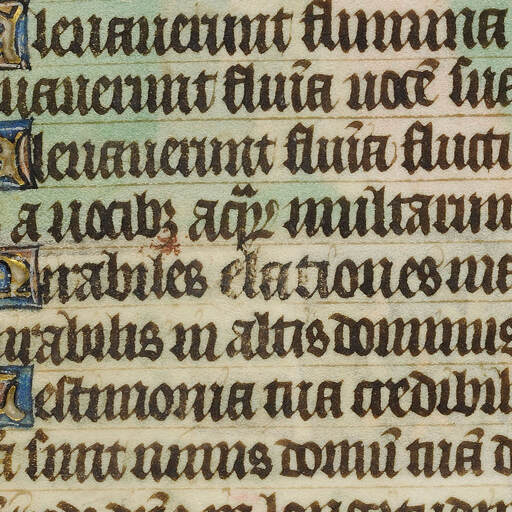 leuauerunt flumina
uauerunt fluīa uocē sua
leuauerunt fluīa flucti
a uocibꝫ aqꝝ multarum
Mirabiles elationes ma
rabilis in altis dominus
Testimonia tua credibil
a sunt nimis domū tuā d